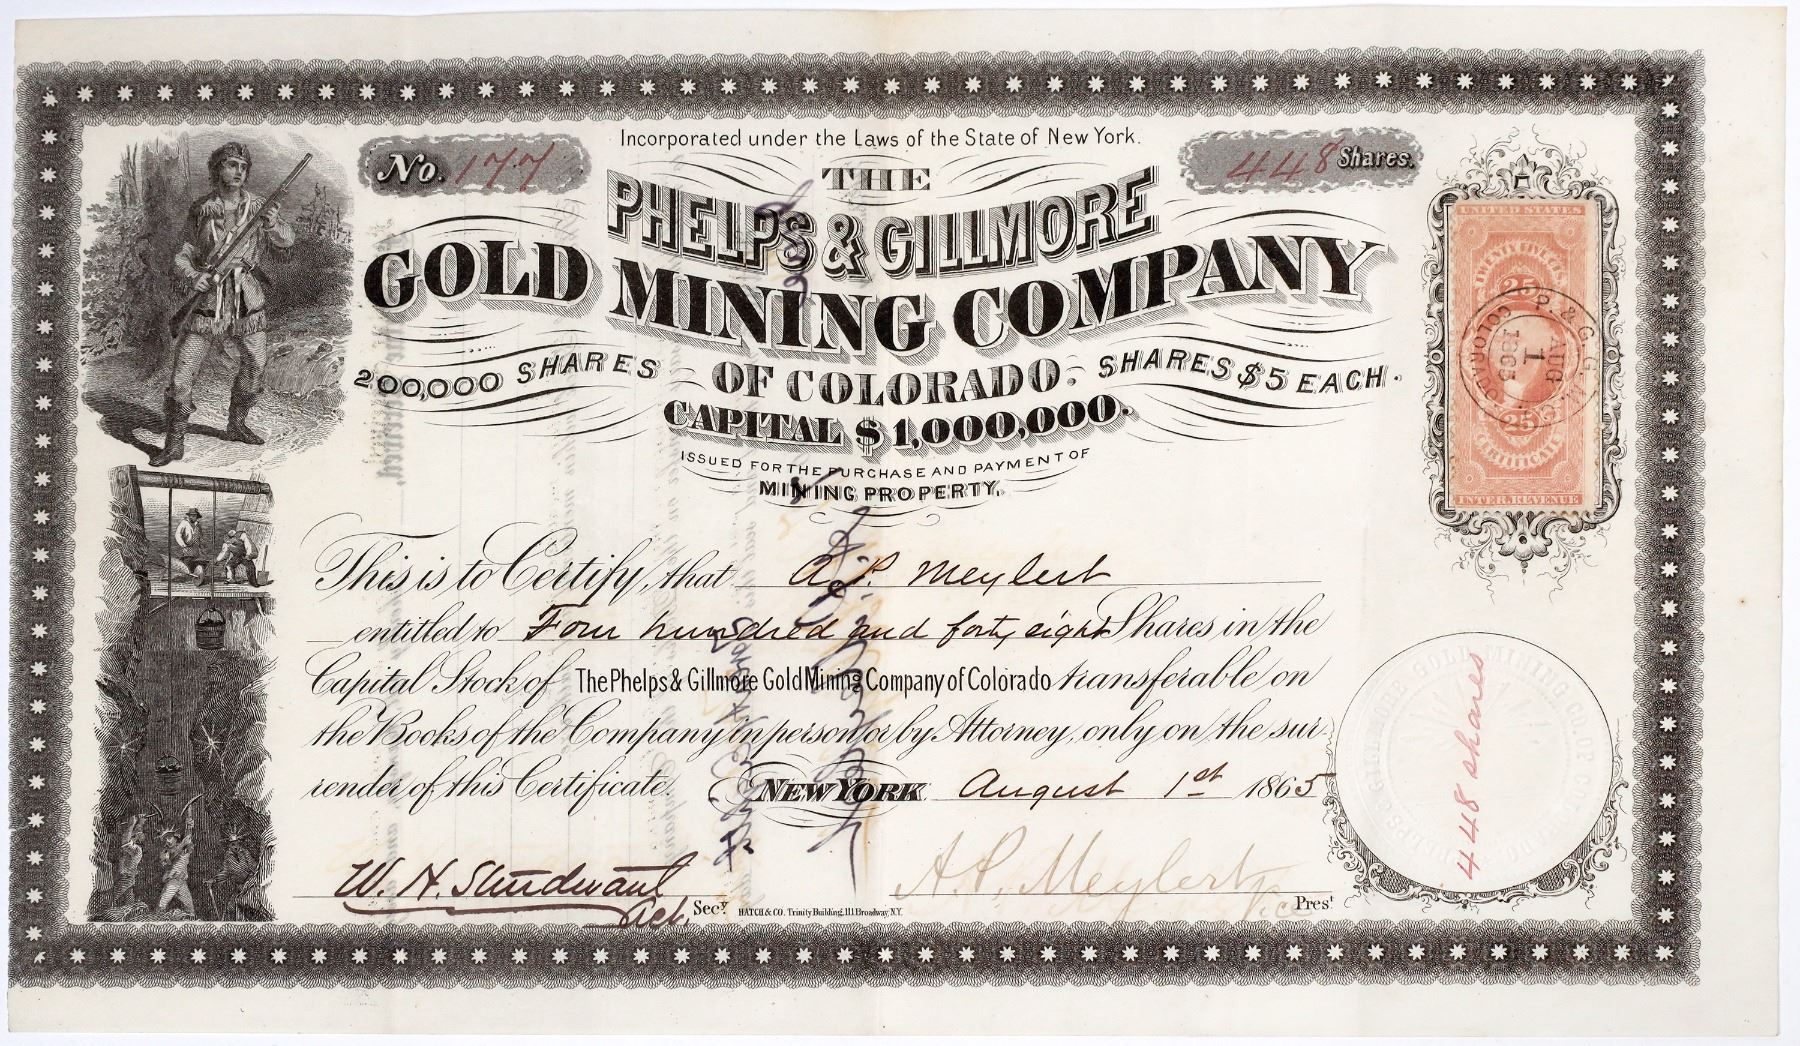 Incorporated under the Laws of the State of New York.
No. 177
448 Shares.
THE
PHELPS & GILLMORE
GOLD MINING COMPANY
OF COLORADO.
200,000 SHARES
SHARES $5 EACH.
CAPITAL $1,000,000.
ISSUED FOR THE PURCHASE AND PAYMENT OF
MINING PROPERTY.
UNITED STATES
25
P. & G. G. M. Co.
COLORADO
AUG
1
1865
25
CERTIFICATE
INTER. REVENUE
This is to Certify, that A. P. Meylert
entitled to Four hundred and forty eight Shares in the
Capital Stock of The Phelps & Gillmore Gold Mining Company of Colorado transferable on
the Books of the Company in person or by Attorney, only on the sur-
render of this Certificate.
NEW YORK August 1st 1865
W. H. Sturdevant
Act. Secy
HATCH & CO. Trinity Building, 111 Broadway, N.Y.
A. P. Meylert
Vice Prest
448 shares